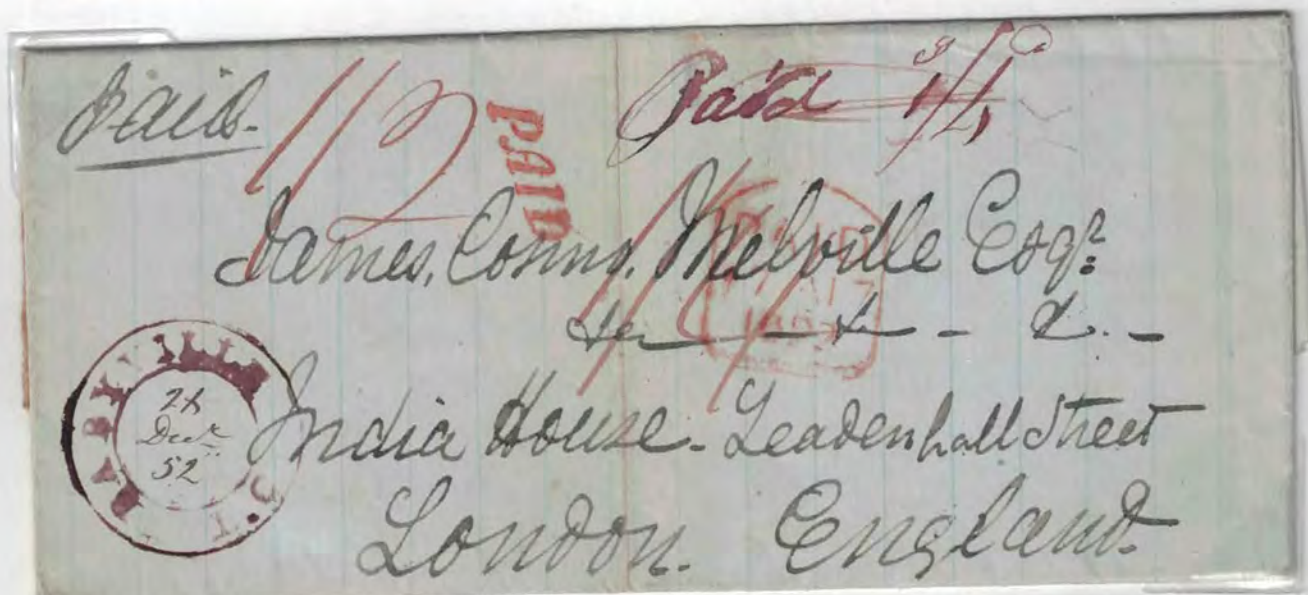 Paid.
1/2
PAID
Paid 1/4
James. Cosmo. Melville Esqr.
&c - &c - &c. -
PAID
India House - Leadenhall Street
London. England.
52